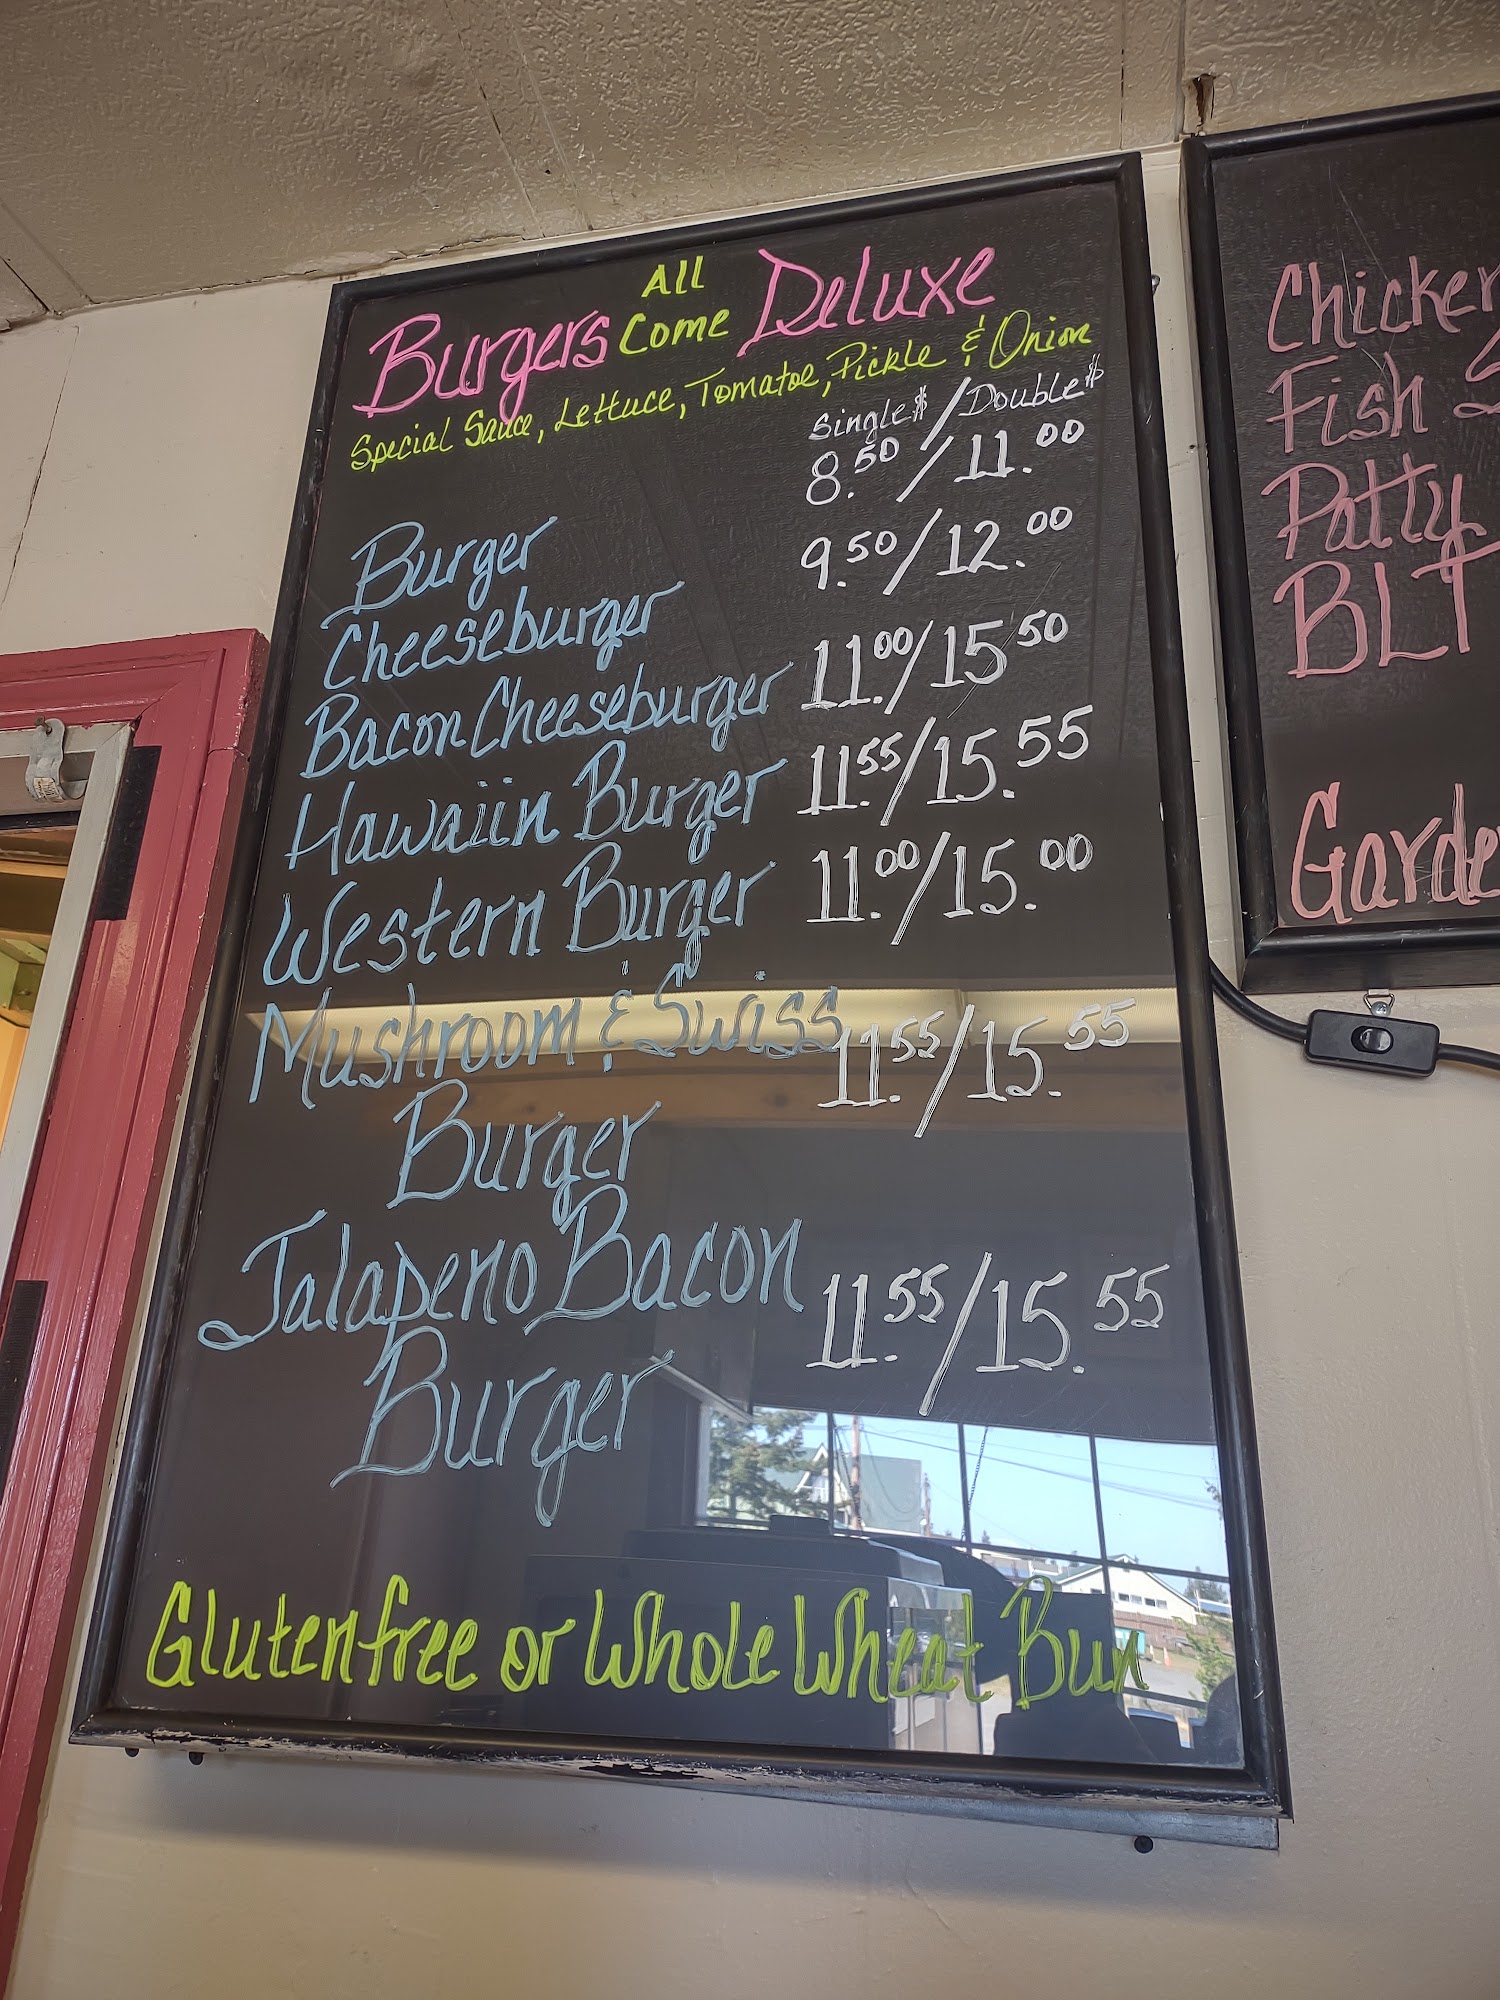 All
Burgers Come Deluxe
Special Sauce, Lettuce, Tomatoe, Pickle & Onion
Single$/Double$
Burger 8.50/11.00
Cheeseburger 9.50/12.00
Bacon Cheeseburger 11.00/15.50
Hawaiin Burger 11.55/15.55
Western Burger 11.00/15.00
Mushroom & Swiss 11.55/15.55
Burger
Jalapeno Bacon 11.55/15.55
Burger
Glutenfree or Whole Wheat Bun
Chicken
Fish
Patty
BLT
Garde